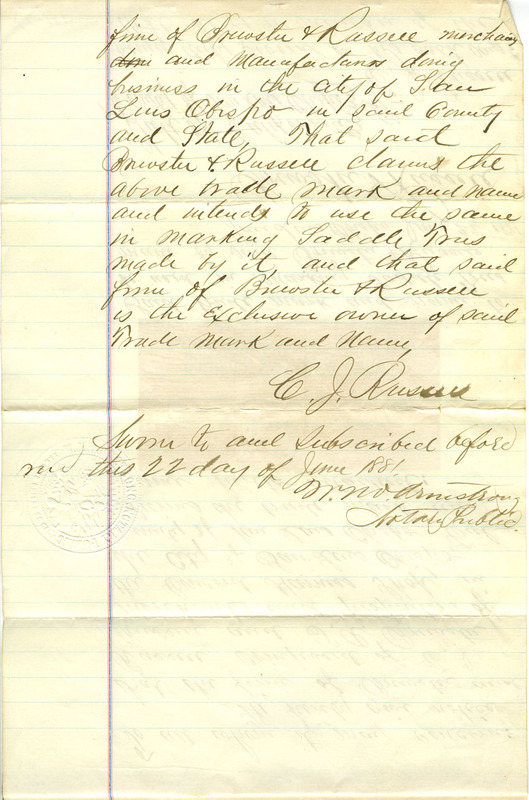 firm of Brewster & Russell merchants
and Manufacturers doing
business in the city of San
Luis Obispo in said County
and State, That said
Brewster & Russell claims the
above trade mark and name
and intends to use the same
in marking Saddle Trees
made by it, and that said
firm of Brewster & Russell
is the Exclusive owner of said
Trade Mark and Name,
C. J. Russell
Sworn to and Subscribed before
me this 22 day of June 1881
Armstrong
Notary Public